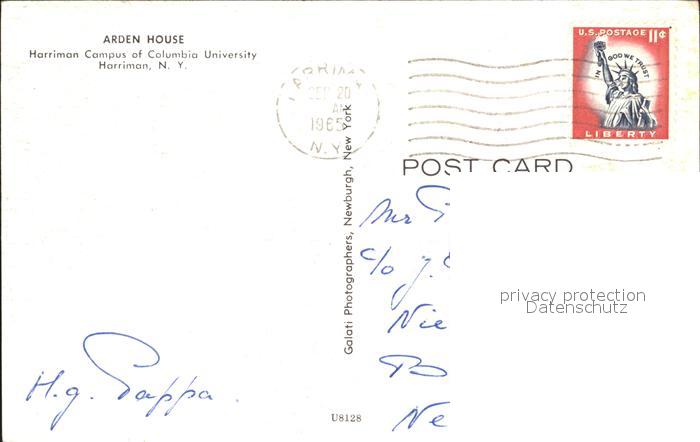 ARDEN HOUSE
Harriman Campus of Columbia University
Harriman, N. Y.
HARRIMAN
SEP 20
AM
1965
N.Y.
U.S. POSTAGE 11¢
IN GOD WE TRUST
LIBERTY
POST CARD
Galati Photographers, Newburgh, New York
Mr
c/o J.
Nie
B
Ne
privacy protection
Datenschutz
H.g. Pappa.
U8128